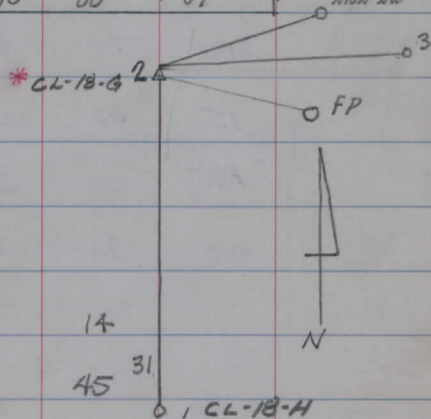 3
* CL-18-G 2
FP
14
N
31
45
1 CL-18-H